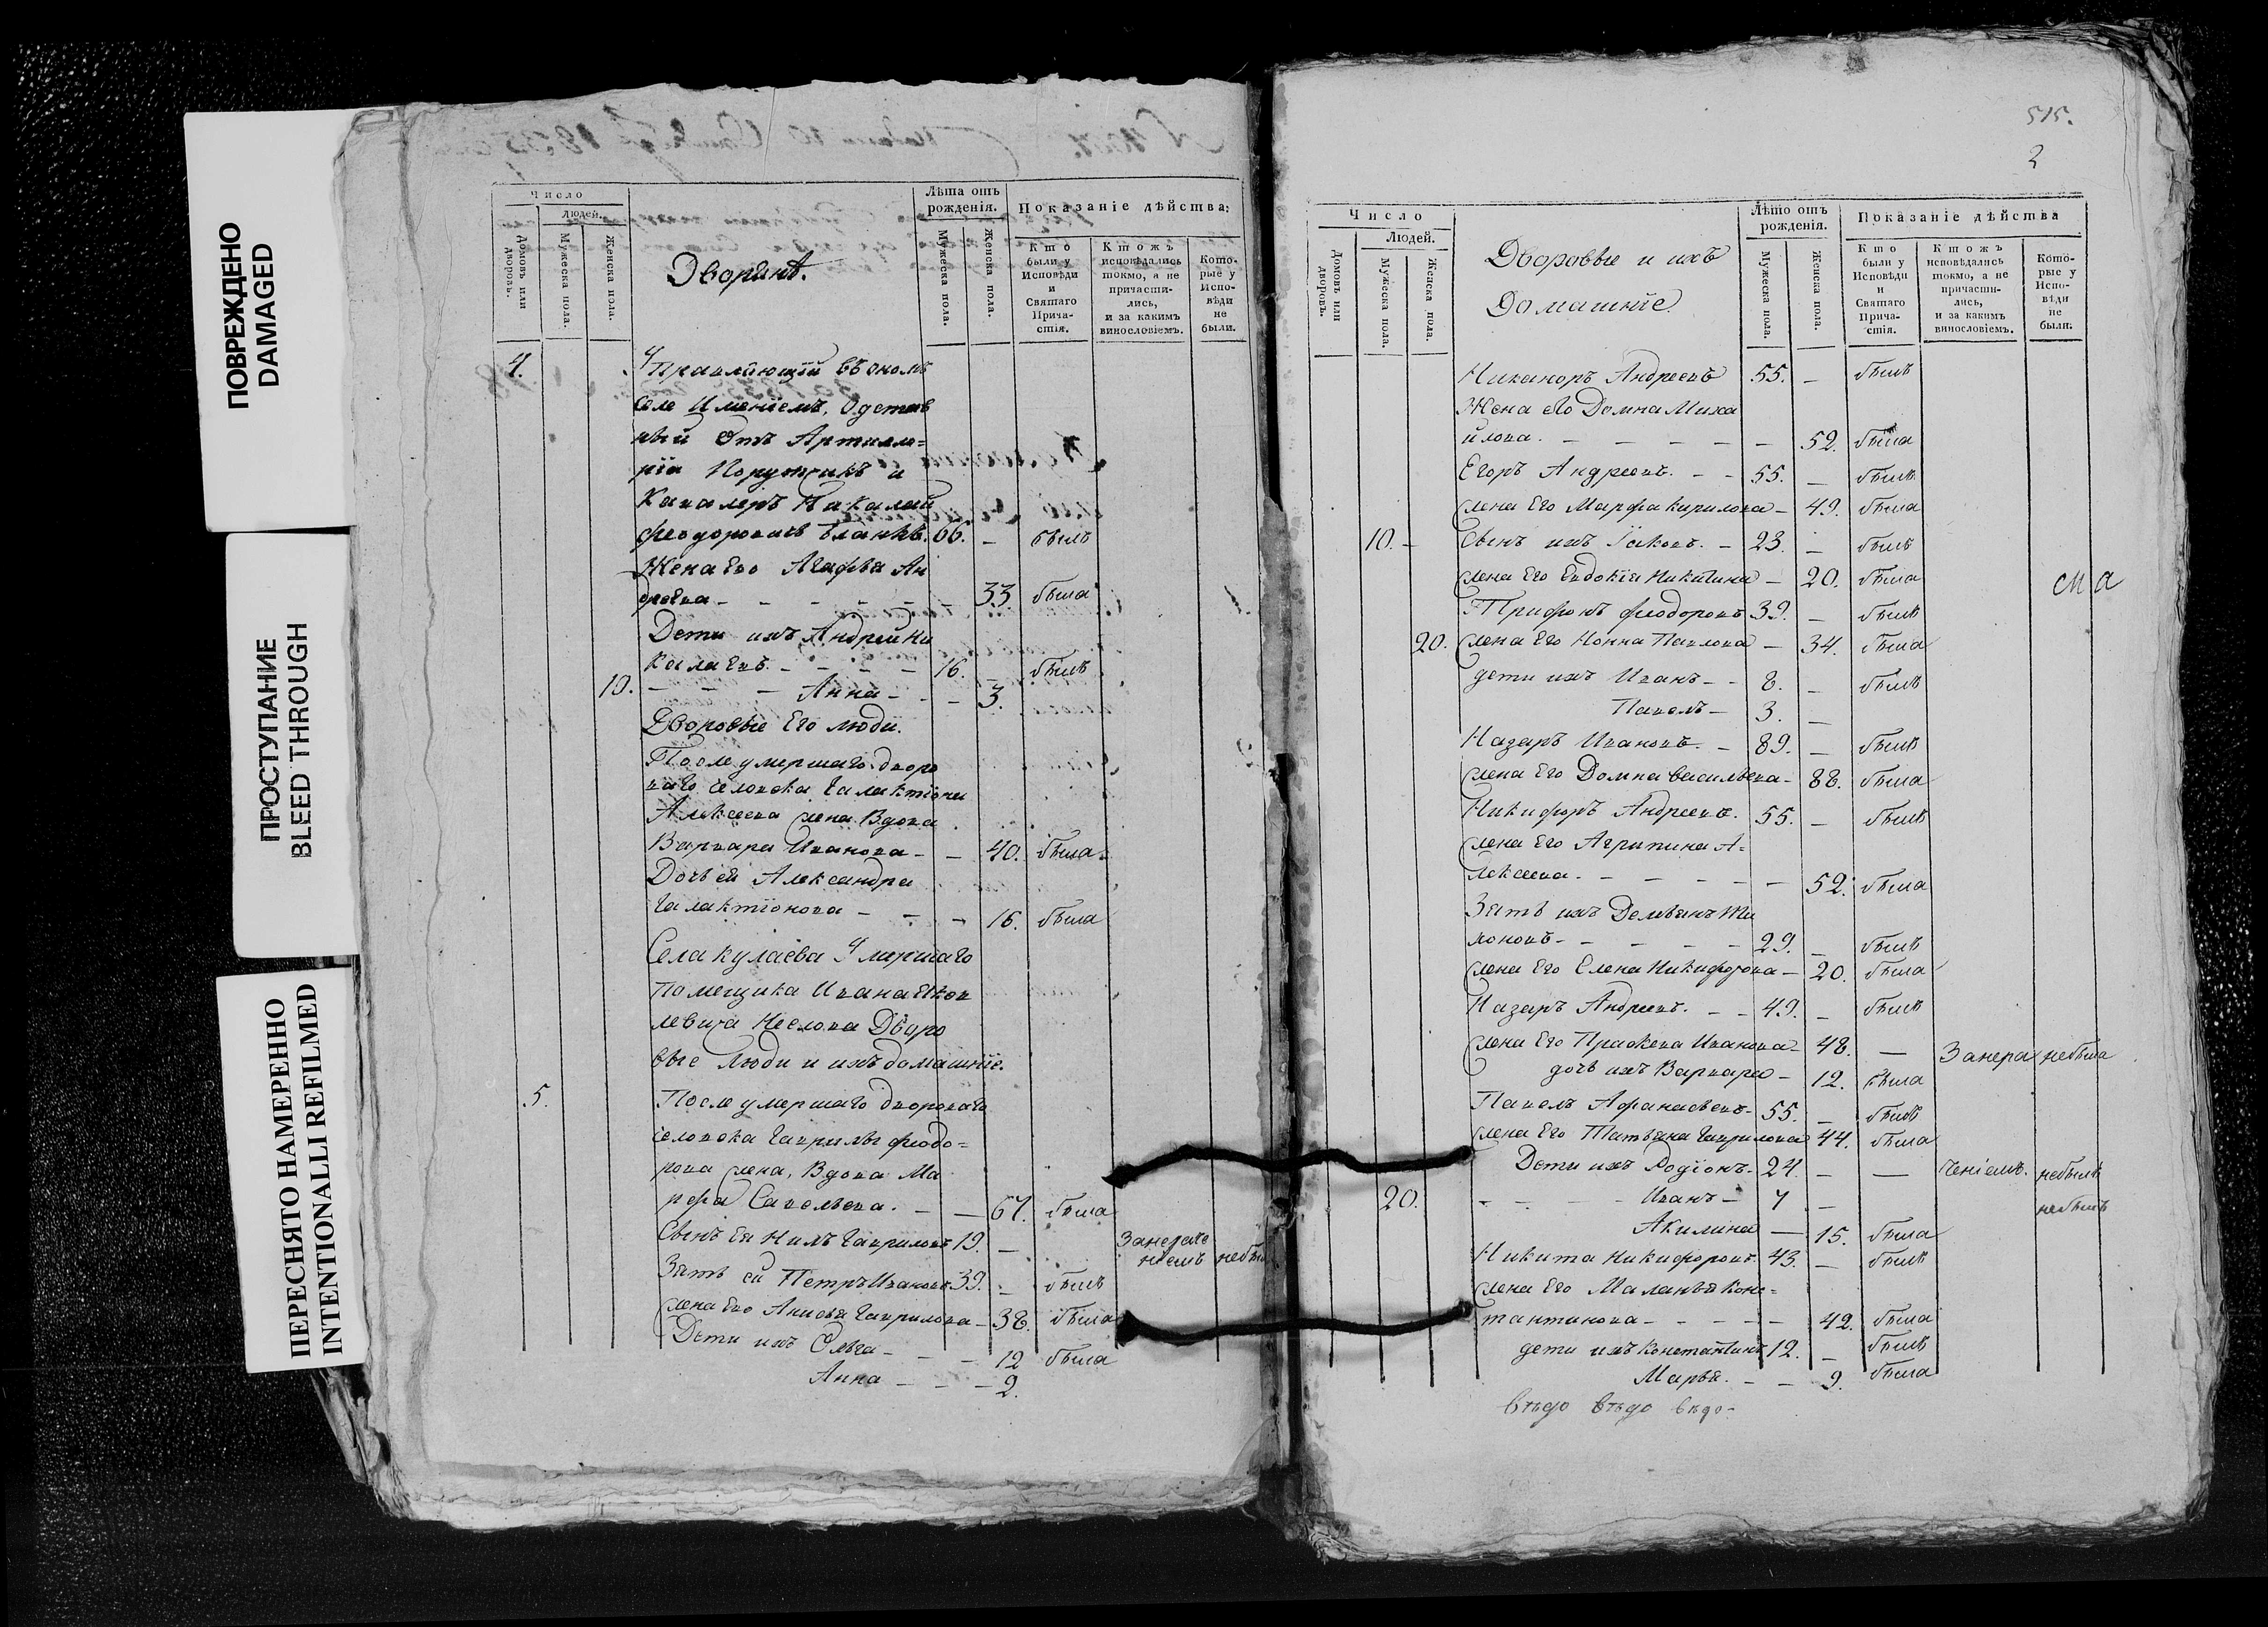 ПОВРЕЖДЕНО
DAMAGED
ПРОСТУПАНИЕ
BLEED THROUGH
ПЕРЕСНЯТО НАМЕРЕННО
INTENTIONALLI REFILMED
Число
Людей.
Домовъ или дворовъ.
Мужеска пола.
Женска пола.
Дворяне.
Лѣта отъ рожденія.
Мужеска пола.
Женска пола.
Показаніе дѣйства:
Кто были у Исповѣди и Святаго Причастія.
Ктожъ исповѣдались токмо, а не причастились, и за какимъ винословіемъ.
Которые у Исповѣди не были.
4. Управляющій въ ономъ
селе Именіемъ, Одстав
ный отъ Артилле=
ріи Поручикъ и
Кавалеръ Николай
Феодоровичъ Бланкъ. 66. – былъ
Жена Его Агафья Ан
дреева – 33 была
Дети ихъ Андрей Ни
колаевъ. – 16. – былъ
10. – Анна – 3.
Дворовые Его люди.
После умершаго дворо
ваго человека Галактіона
Алексеева жена Вдова
Варвара Иванова – 40. была
Дочь ей Александра
Галактіонова – 16. была
Села Кулаева Умершаго
Помещика Ивана
левича Дворо
вые Люди и ихъ домашніе.
5. После умершаго двороваго
человека Гаврилы Феодо=
рова жена, Вдова Ма
рфа Савельева. – 67. была
Сынъ Ея Нилъ Гавриловъ 19. –
Зять ей Петръ Ивановъ 39. – былъ
жена Его Анисья Гаврилова – 38. была
Дети ихъ Ольга – 12 была
Анна – 2.
515.
2
Число
Людей.
Домовъ или дворовъ.
Мужеска пола.
Женска пола.
Дворовые и ихъ
Домашніе
Лѣто отъ рожденія.
Мужеска пола.
Женска пола.
Показаніе дѣйства
Кто были у Исповѣди и Святаго Причастія.
Ктожъ исповѣдались токмо, а не причастились, и за какимъ винословіемъ.
Которые у Исповѣди не были.
Никаноръ Андреевъ 55. – былъ
Жена его Домна Миха
йлова. – 52. была
Егоръ Андреевъ. – 55. – былъ
жена Его Марфа Кирилова – 49. была
10. – Сынъ ихъ Іаковъ. – 23. – былъ
жена Его Евдокія Никитина – 20. была
Трифонъ Феодоровъ 39. – былъ
20. жена Его Нонна Павлова – 34. была
дети ихъ Иванъ – 8. – былъ
Павелъ – 3. –
Назаръ Ивановъ. – 89. – былъ
жена Его Домна Васильева – 88. была
Никифоръ Андреевъ. 55. – былъ
жена Его Агрипина А=
лексеева. – 52. была
Зять ихъ Демьянъ Ти
моновъ – 29. – былъ
жена Его Елена Никифорова – 20. была
Назаръ Андреевъ. – 49. – былъ
жена Его Прасковья Иванова – 48. – Занера небыла
дочь ихъ Варвара – 12. была
Павелъ Афанасьевъ – 55. – былъ
жена Его Татьяна Гаврилова 44. была
Дети ихъ Родіонъ – 24 – – ченіемъ. небылъ
20. – Иванъ – 7 – небылъ
Акилина – 15. была
Никита Никифоровъ 43. – былъ
жена Его Маланья Конс=
тантинова – 42. была
дети ихъ Константинъ 12. – былъ
Марья. – 9. была